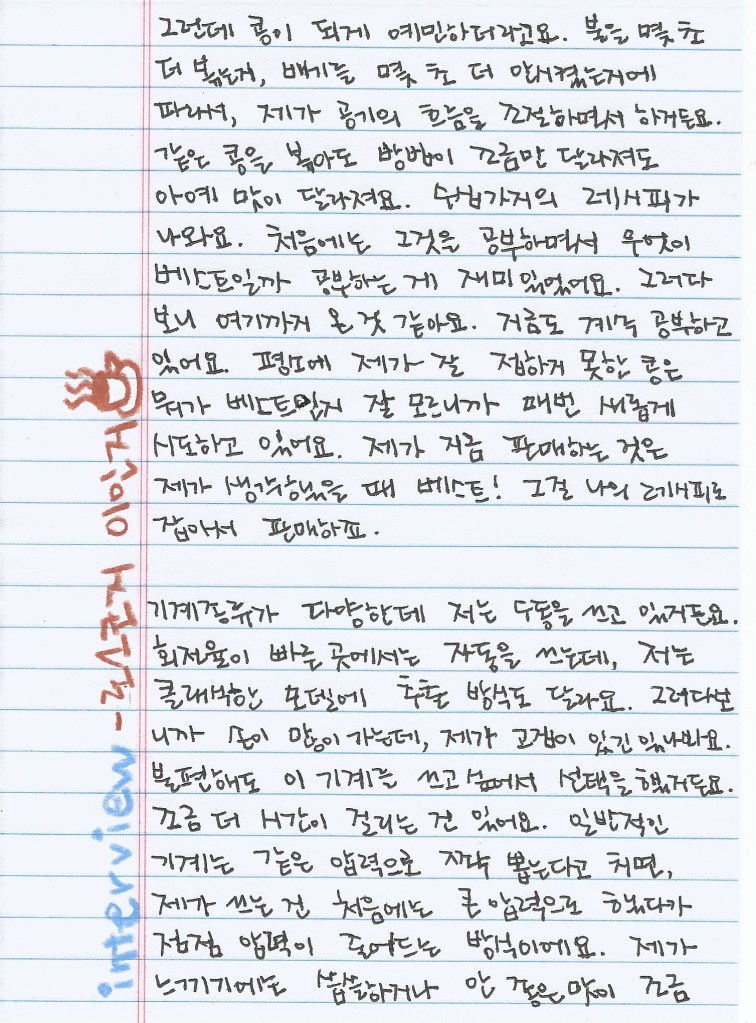 그런데 콩이 되게 예민하더라고요. 불을 몇 초
더 볶는거, 배기를 몇 초 더 안시켰는거에
따라서, 제가 공기의 흐름을 조절하면서 하거든요.
같은 콩을 볶아도 방법이 조금만 달라져도
아예 맛이 달라져요. 수십가지의 레시피가
나와요. 처음에는 그것을 공부하면서 무엇이
베스트일까 공부하는 게 재미있었어요. 그러다
보니 여기까지 온 것 같아요. 지금도 계속 공부하고
있어요. 평소에 제가 잘 접하지 못한 콩은
뭐가 베스트인지 잘 모르니까 매번 새롭게
시도하고 있어요. 제가 지금 판매하는 것은
제가 생각했을 때 베스트! 그걸 나의 레시피로
잡아서 판매하죠.
기계종류가 다양한데 저는 수동을 쓰고 있거든요.
회전율이 빠른 곳에서는 자동을 쓰는데, 저는
클래식한 모델에 추출 방식도 달라요. 그러다보
니까 손이 많이 가는데, 제가 고집이 있긴 있나봐요.
불편해도 이 기계를 쓰고 싶어서 선택을 했거든요.
조금 더 시간이 걸리는 건 있어요. 일반적인
기계는 같은 압력으로 쭉 뽑는다고 치면,
제가 쓰는 건 처음에는 큰 압력으로 했다가
점점 압력이 줄어드는 방식이에요. 제가
느끼기에는 씁쓸하거나 안 좋은 맛이 조금
interview - 로스팅 이인지